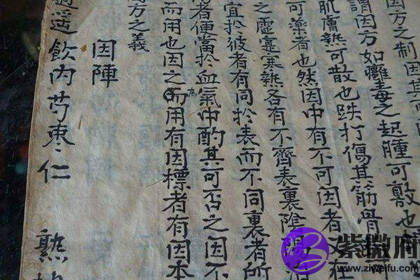 方之制因其
謂因方如癰毒之起腫可敷也
肌膚熱可散也跌打傷其筋骨
可藥者也然因中有不可因者在
之虛實寒熱各有不齊表裏陰
宜於彼者有同於表而不同裏者所
者便當於血氣中酌其可否之因不
而用也因之而用有因標者有因本
方之義
因陣
逍遙飲內芍棗仁 熟
紫微府
www.ziweifu.com